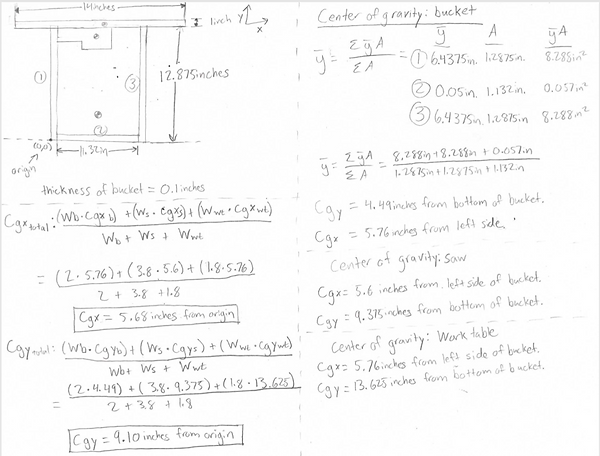 14inches
1inch
Y
X
①
③
12.875inches
②
(0,0)
origin
11.32in
thickness of bucket = 0.1inches
Cgx total: (Wb·Cgx b) + (Ws · Cgxs) + (Wwt · Cgxwt)
Wb + Ws + Wwt
= (2 · 5.76) + (3.8 · 5.6) + (1.8 · 5.76)
2 + 3.8 + 1.8
Cgx = 5.68 inches from origin
Cgy total: (Wb · Cgyb) + (Ws · Cgys) + (Wwt · Cgywt)
Wb + Ws + Wwt
= (2 · 4.49) + (3.8 · 9.375) + (1.8 · 13.625)
2 + 3.8 + 1.8
Cgy = 9.10 inches from origin
Center of gravity: bucket
ȳ A ȳA
ȳ = ΣȳA / ΣA = ① 6.4375in. 1.2875in 8.288in²
② 0.05in. 1.132in 0.057in²
③ 6.4375in. 1.2875in 8.288in²
ȳ = ΣȳA / ΣA = 8.288in + 8.288in + 0.057in / 1.2875in + 1.2875in + 1.132in
Cgy = 4.49 inches from bottom of bucket.
Cgx = 5.76 inches from left side.
Center of gravity: Saw
Cgx = 5.6 inches from left side of bucket.
Cgy = 9.375 inches from bottom of bucket.
Center of gravity: Work table
Cgx = 5.76 inches from left side of bucket.
Cgy = 13.625 inches from bottom of bucket.